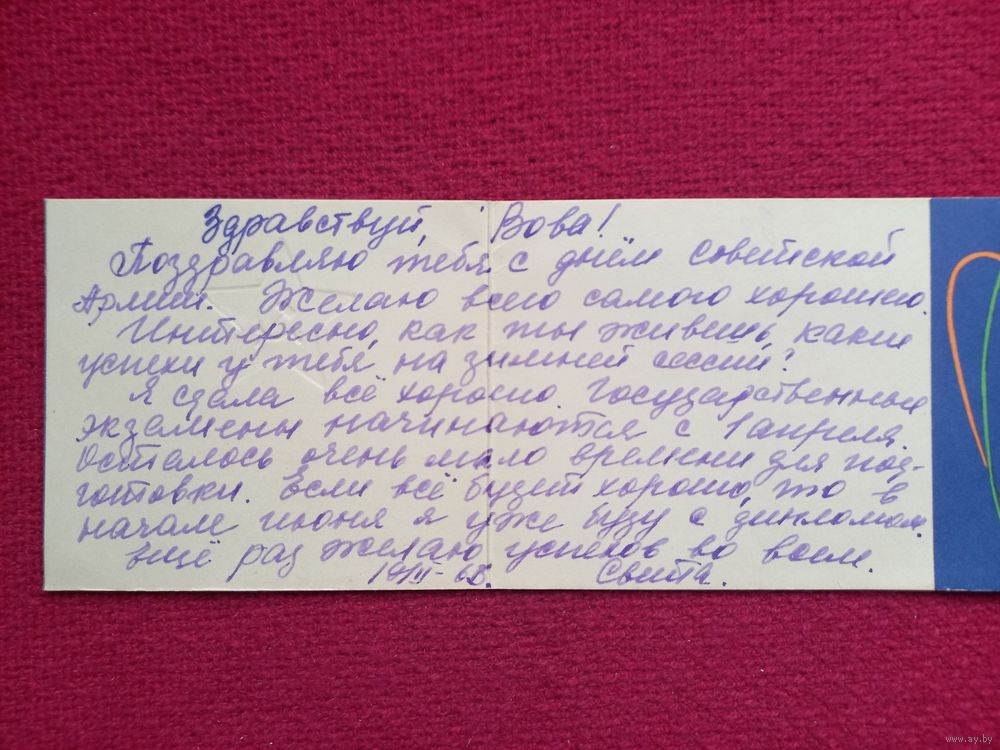 Здравствуй, Вова!
Поздравляю тебя с днём Советской
Армии. Желаю всего самого хорошего.
Интересно, как ты живешь, какие
успехи у тебя на зимней сессии?
Я сдала всё хорошо. Государственные
экзамены начинаются с 1 апреля.
Осталось очень мало времени для под-
готовки. Если всё будет хорошо, то в
начале июня я уже буду с дипломом.
Ещё раз желаю успехов во всем.
Света.
www.ay.by